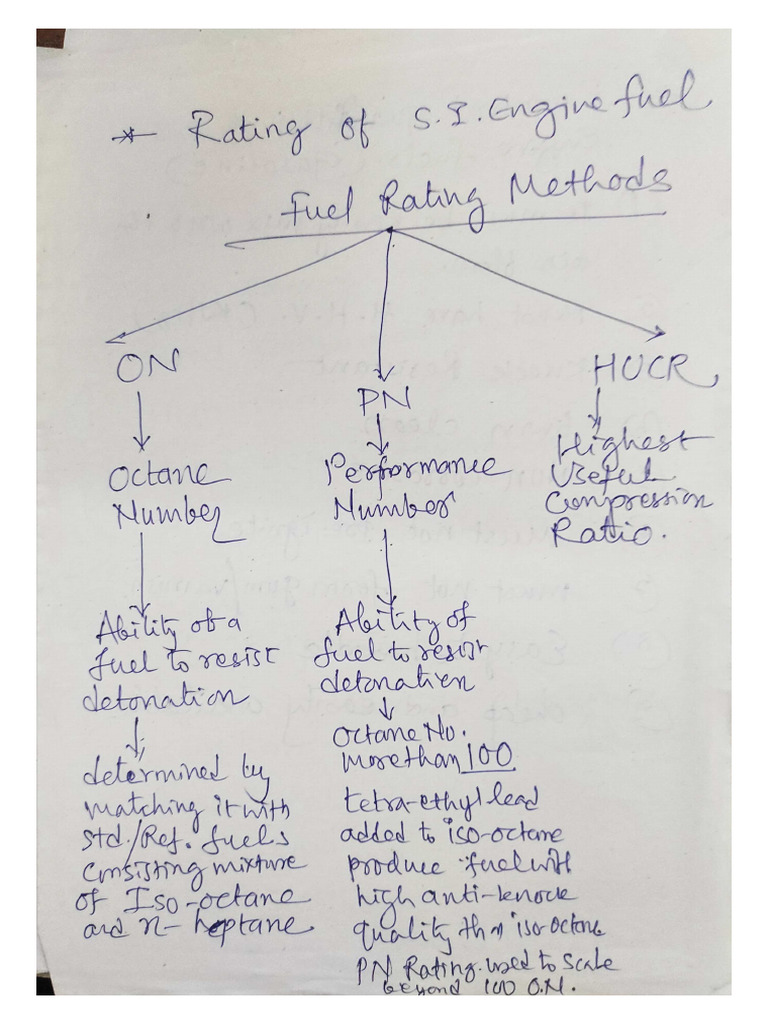 * Rating of S.I. Engine fuel
Fuel Rating Methods
ON
Octane
Number
Ability of a
fuel to resist
detonation
determined by
matching it with
std./Ref. fuels
consisting mixture
of Iso-octane
and n-heptane
PN
Performance
Number
Ability of
fuel to resist
detonation
Octane No.
more than 100
tetra-ethyl lead
added to iso-octane
produce fuel with
high anti-knock
quality than iso-octane
PN Rating used to scale
beyond 100 O.N.
HUCR
Highest
Useful
Compression
Ratio.